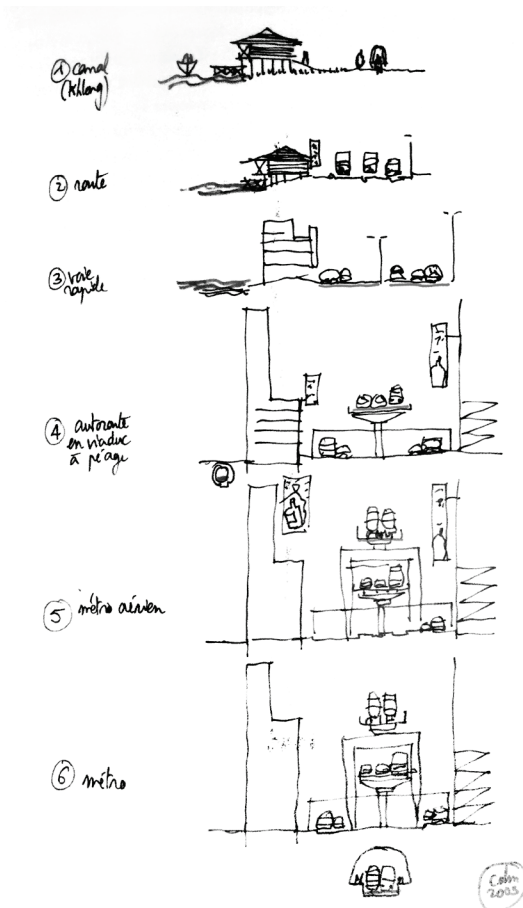 1 canal
(khlong)
2 route
3 voie
rapide
4 autoroute
en viaduc
à péage
5 métro aérien
6 métro
2003